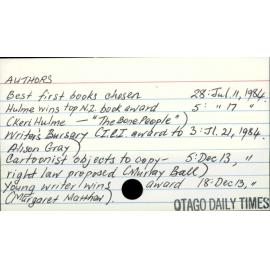 AUTHORS
Best first books chosen 28: Jul. 11, 1984.
Hulme wins top N.Z. book award 5: " 17 "
(Keri Hulme — "The Bone People")
Writers Bursary (I.C.I. award to 3: Jl. 21, 1984.
Alison Gray)
Cartoonist objects to copy- 5: Dec 13, "
right law proposed (Murray Ball)
Young writer wins award 18: Dec 13, "
(Margaret
OTAGO DAILY TIMES